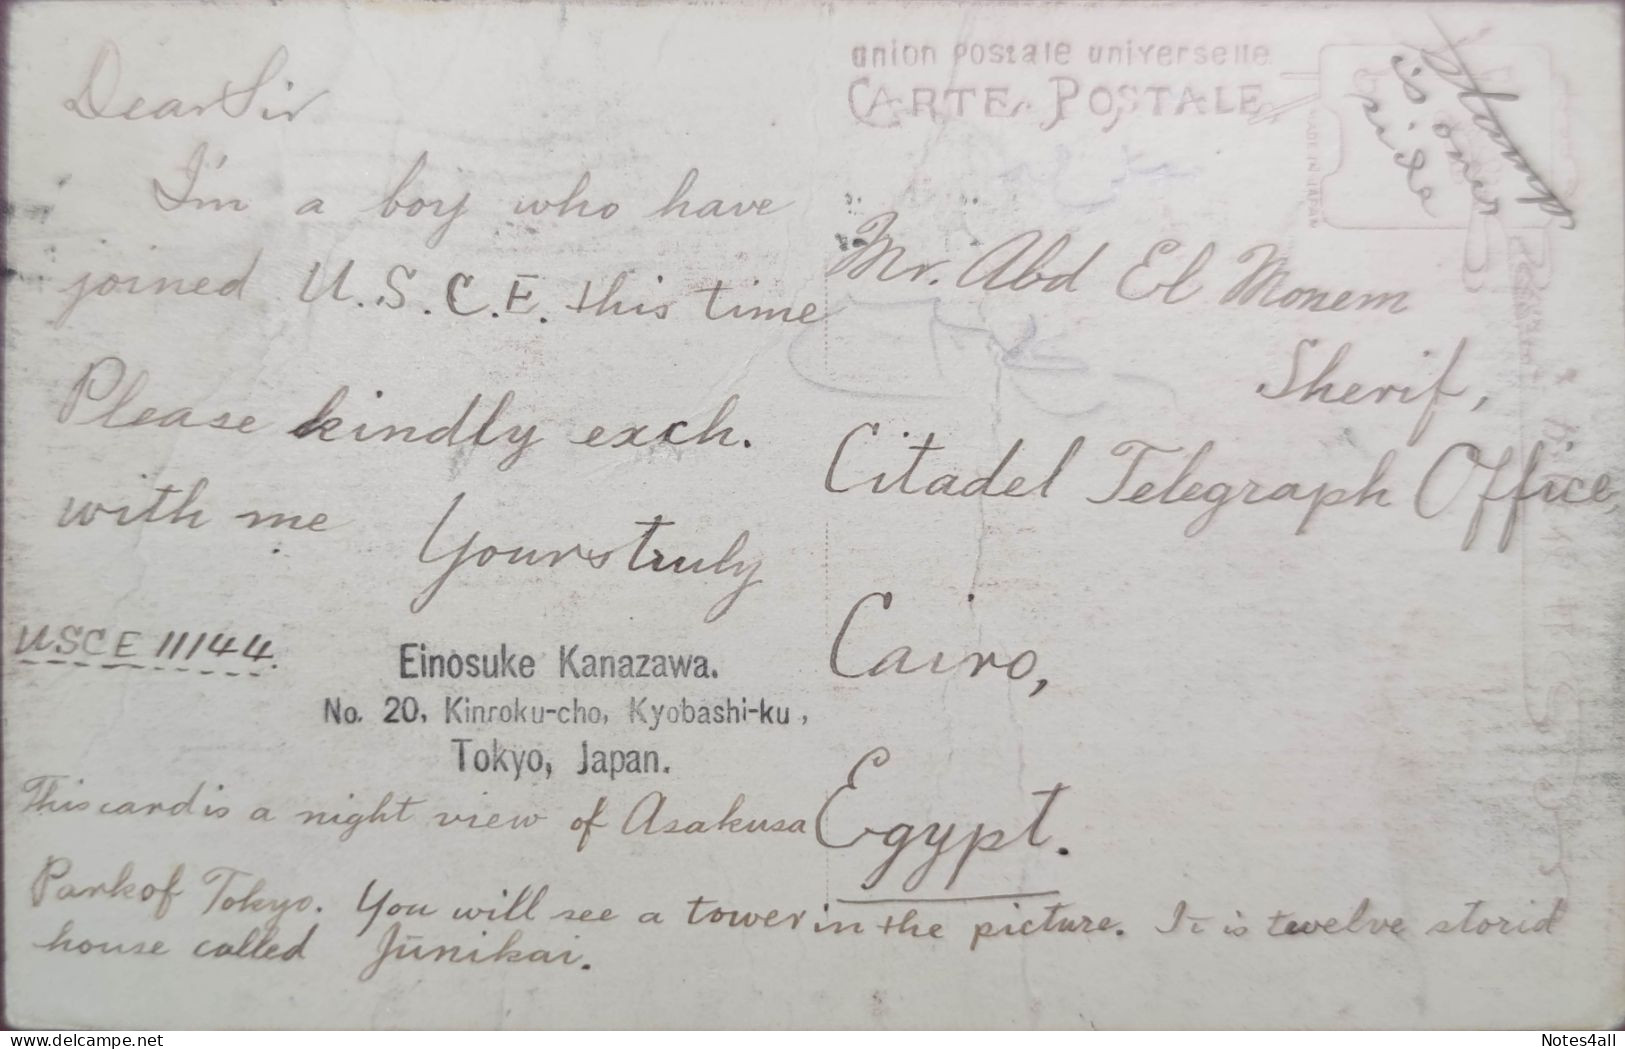 Dear Sir
I'm a boy who have
joined U.S.C.E. this time
Please kindly exch.
with me
Yours truly
USCE 11144.
Einosuke Kanazawa.
No. 20, Kinroku-cho, Kyobashi-ku,
Tokyo, Japan.
This card is a night view of Asakusa
Park of Tokyo. You will see a tower in the picture. It is twelve storid
house called Jūnikai.
union postale universelle
CARTE POSTALE
MADE IN JAPAN
Stamp
is on
Mr. Abd El Monem
Sherif,
Citadel Telegraph Office,
Cairo,
Egypt.
Notes4all.com
Notes4all